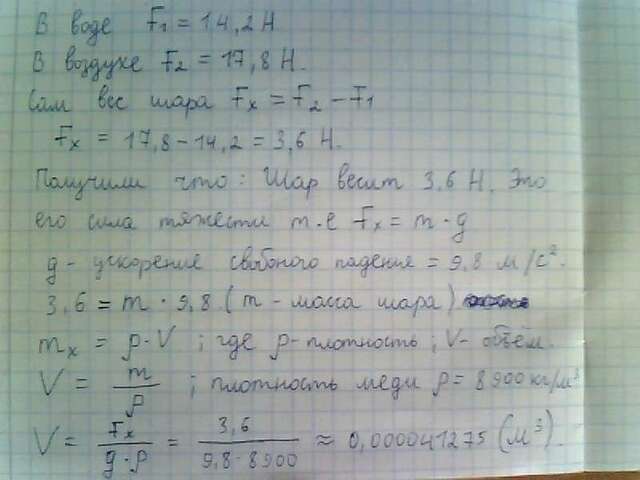 В воде F₁ = 14,2 Н
В воздухе F₂ = 17,8 Н.
Сам вес шара Fₓ = F₂ – F₁
Fₓ = 17,8 – 14,2 = 3,6 Н.
Получили что: Шар весит 3,6 Н. Это
его сила тяжести т.е Fₓ = m · g
g - ускорение свободного падения = 9,8 м/с².
3,6 = m · 9,8 (m - масса шара)
mₓ = ρ · V ; где ρ - плотность ; V - объём.
V = m/ρ ; плотность меди ρ = 8900 кг/м³
V = Fₓ/(g · ρ) = 3,6/(9,8 · 8900) ≈ 0,000041275 (м³).